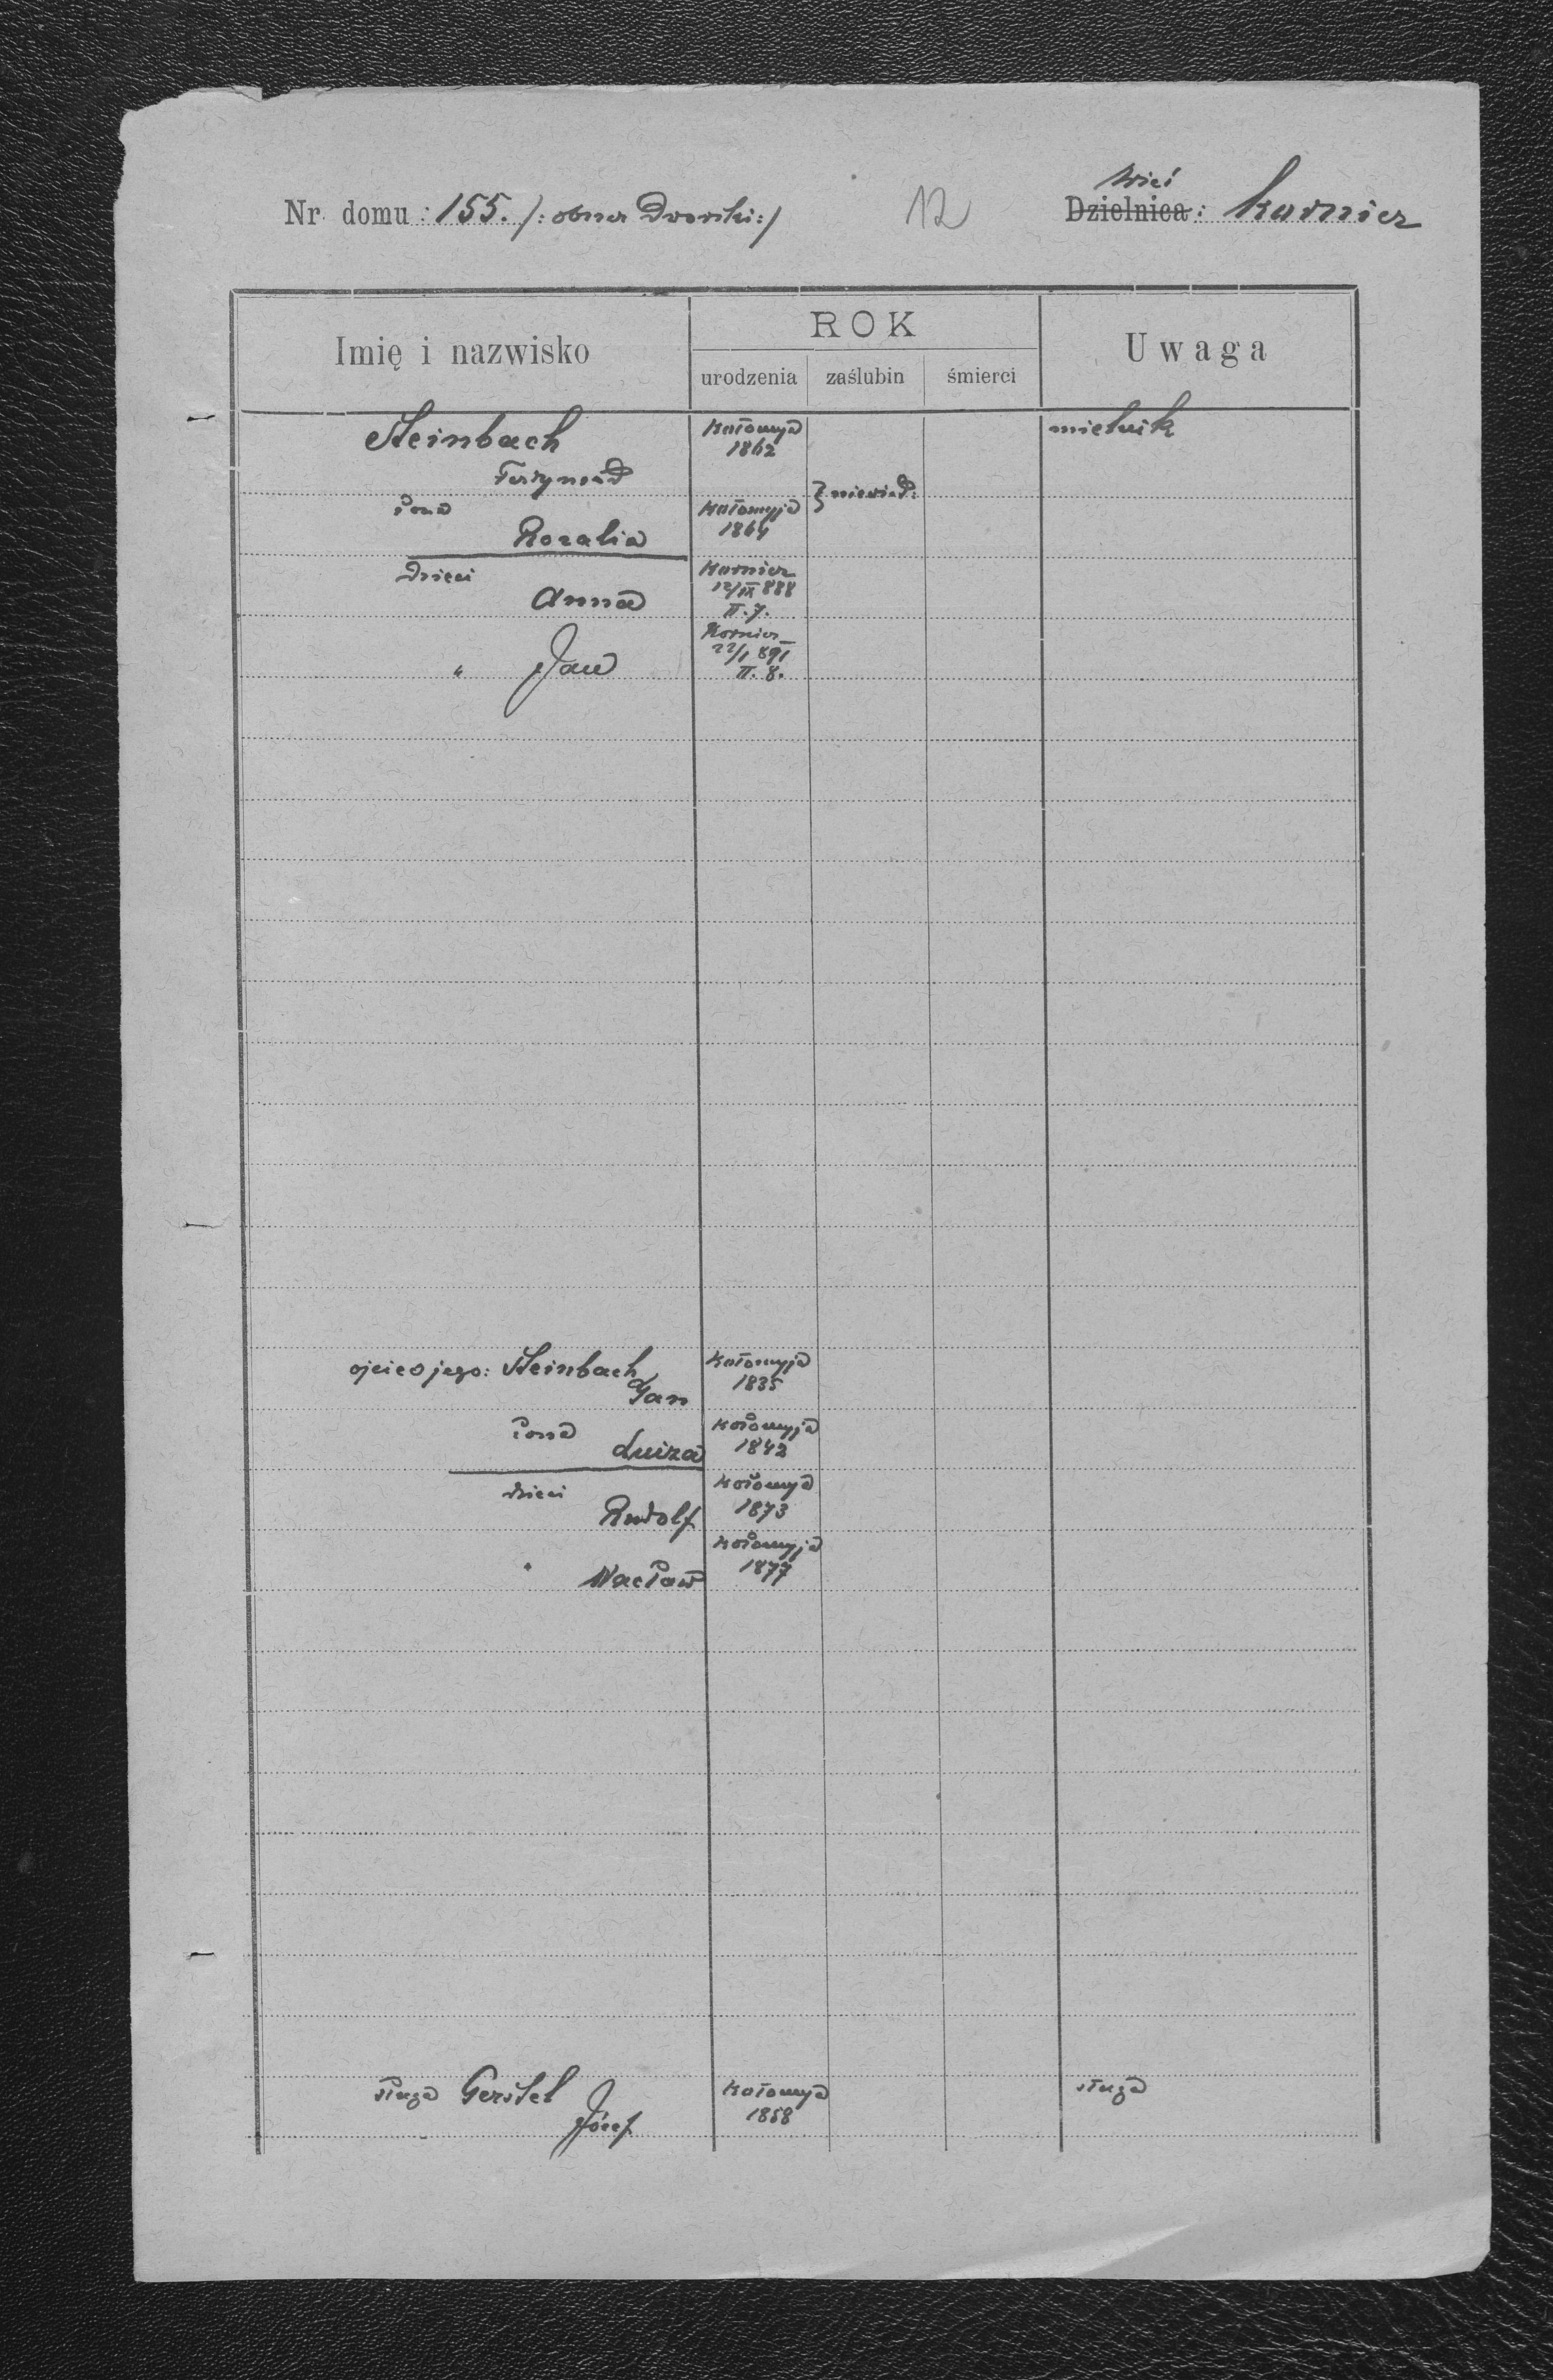 Wieś
Nr. domu: 155. /: obszar Dworski:/ 12 Dzielnica: Karnicz
Imię i nazwisko ROK Uwaga
urodzenia zaślubin śmierci
Steinbach Kołomyja mielnik
1862
Ferdynand
} niewiad:
żona Kołomyja
Rozalia 1864
dzieci Karnicz
Anna 12/IX 888
II. 7.
Karnicz
" Jan 22/I 891
II. 8.
ojciec jego: Steinbach Kołomyja
Jan 1835
żona Kołomyja
Luiza 1842
dzieci Kołomyja
Rudolf 1873
" Kołomyja
Wacław 1877
sługa Gerstel Kołomyja sługa
Józef 1858